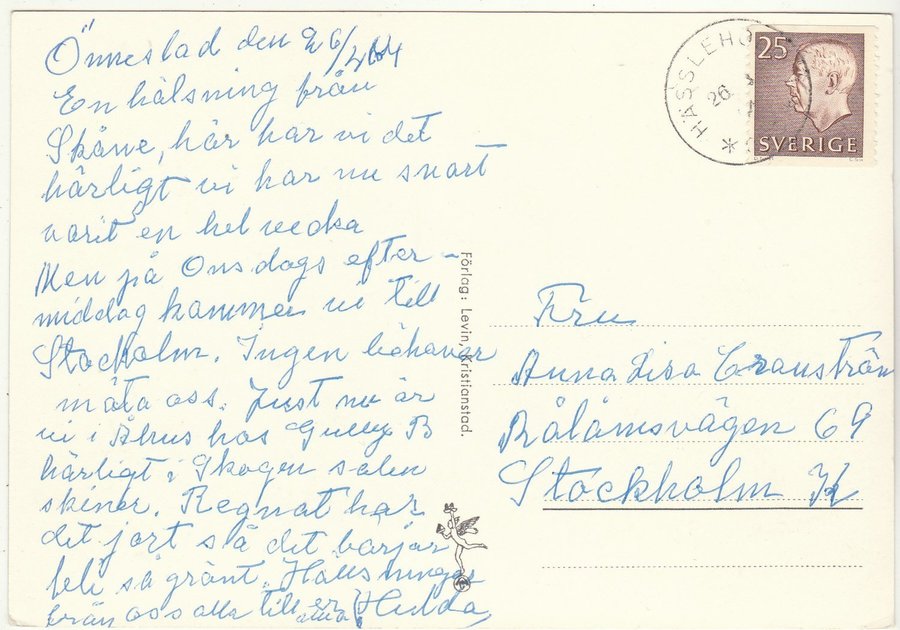 Önnestad den 26/4
En hälsning från
Skåne, här har vi det
härligt vi har nu snart
varit en hel vecka
Men på Onsdags efter-
middag kommer vi till
Stockholm. Ingen behöver
möta oss. Just nu är
vi i Åhus hos Gully B
härligt i Skogen solen
skiner. Regnat har
det jort så det barjar
bli så grönt. Hällsningar
från oss alla till er alla Hulda
HÄSSLEHO
26
25
SVERIGE
Förlag: Levin, Kristianstad.
Fru
Anna Lisa Cranström
Rålamsvägen 69
Stockholm K